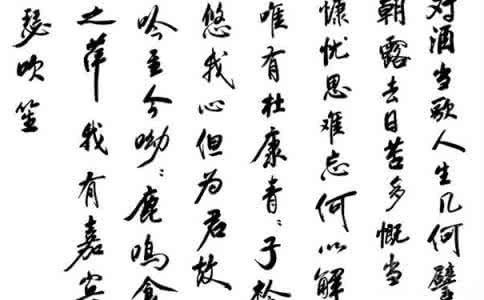 对酒当歌人生几何譬
朝露去日苦多慨当
慷忧思难忘何以解
唯有杜康青〻子衿
悠我心但为君故
吟至今呦〻鹿鸣食
之苹我有嘉宾
瑟吹笙